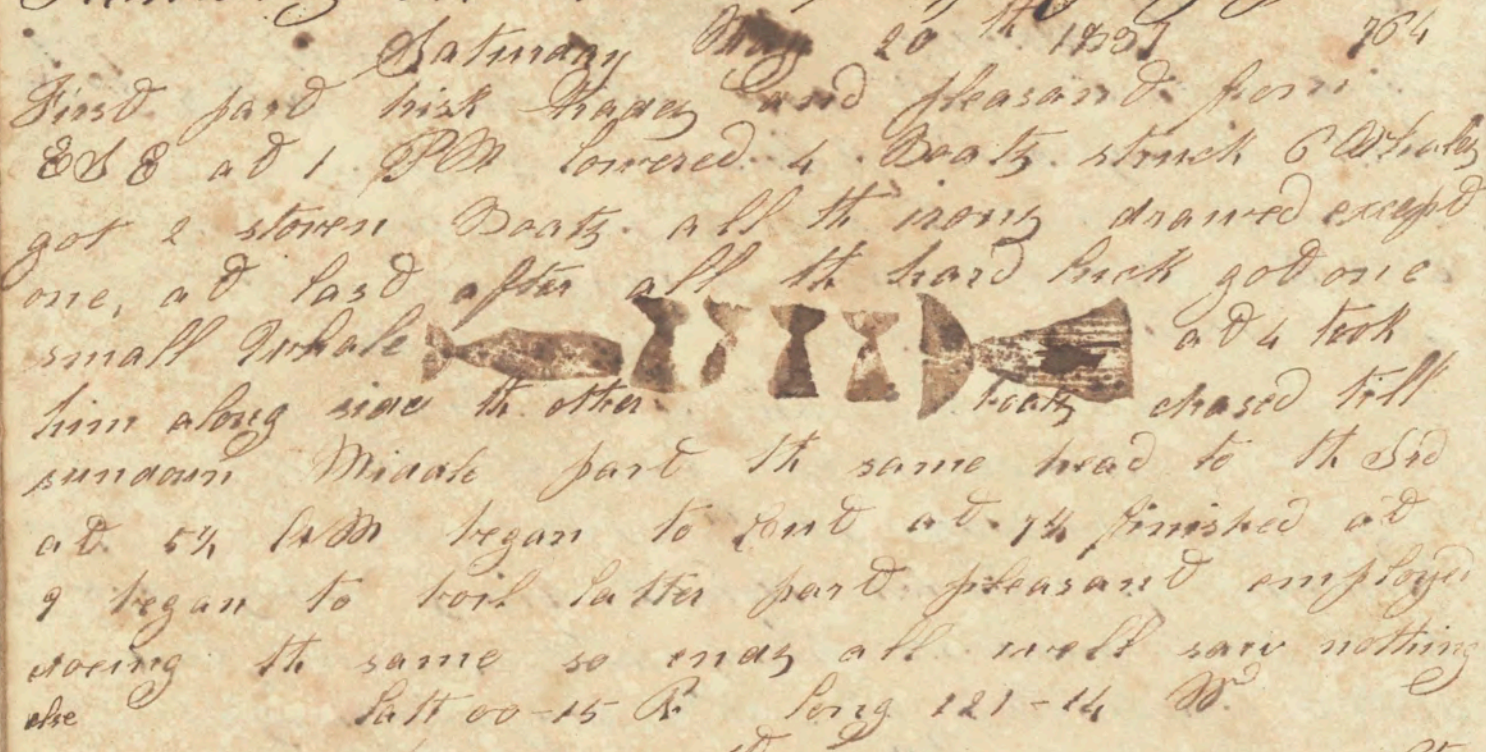 Saturday May 20th 1837 764
First part brisk trades and pleasant from
ESE at 1 PM lowered 4 Boats struck 6 Whales
got 2 stoven Boats all th irons drawed except
one, at last after all th hard luck got one
small Whale at 4 took
him along side th other boats chased till
sundown Middle part th same head to th Srd
at 5½ AM began to Cut at 7½ finished at
9 began to boil latter part pleasant employed
doeing th same so ends all well saw nothing
else Latt 00-15 Long 121-14 W